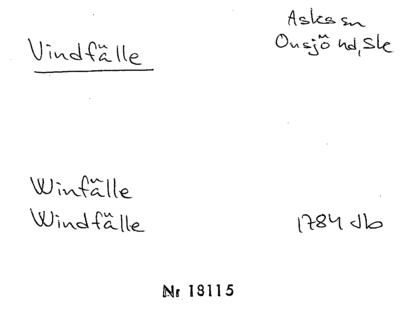 Vindfälle
Asks sn
Onsjö hd, Sk
Winfälle
Windfälle 1784 db
Nr 18115